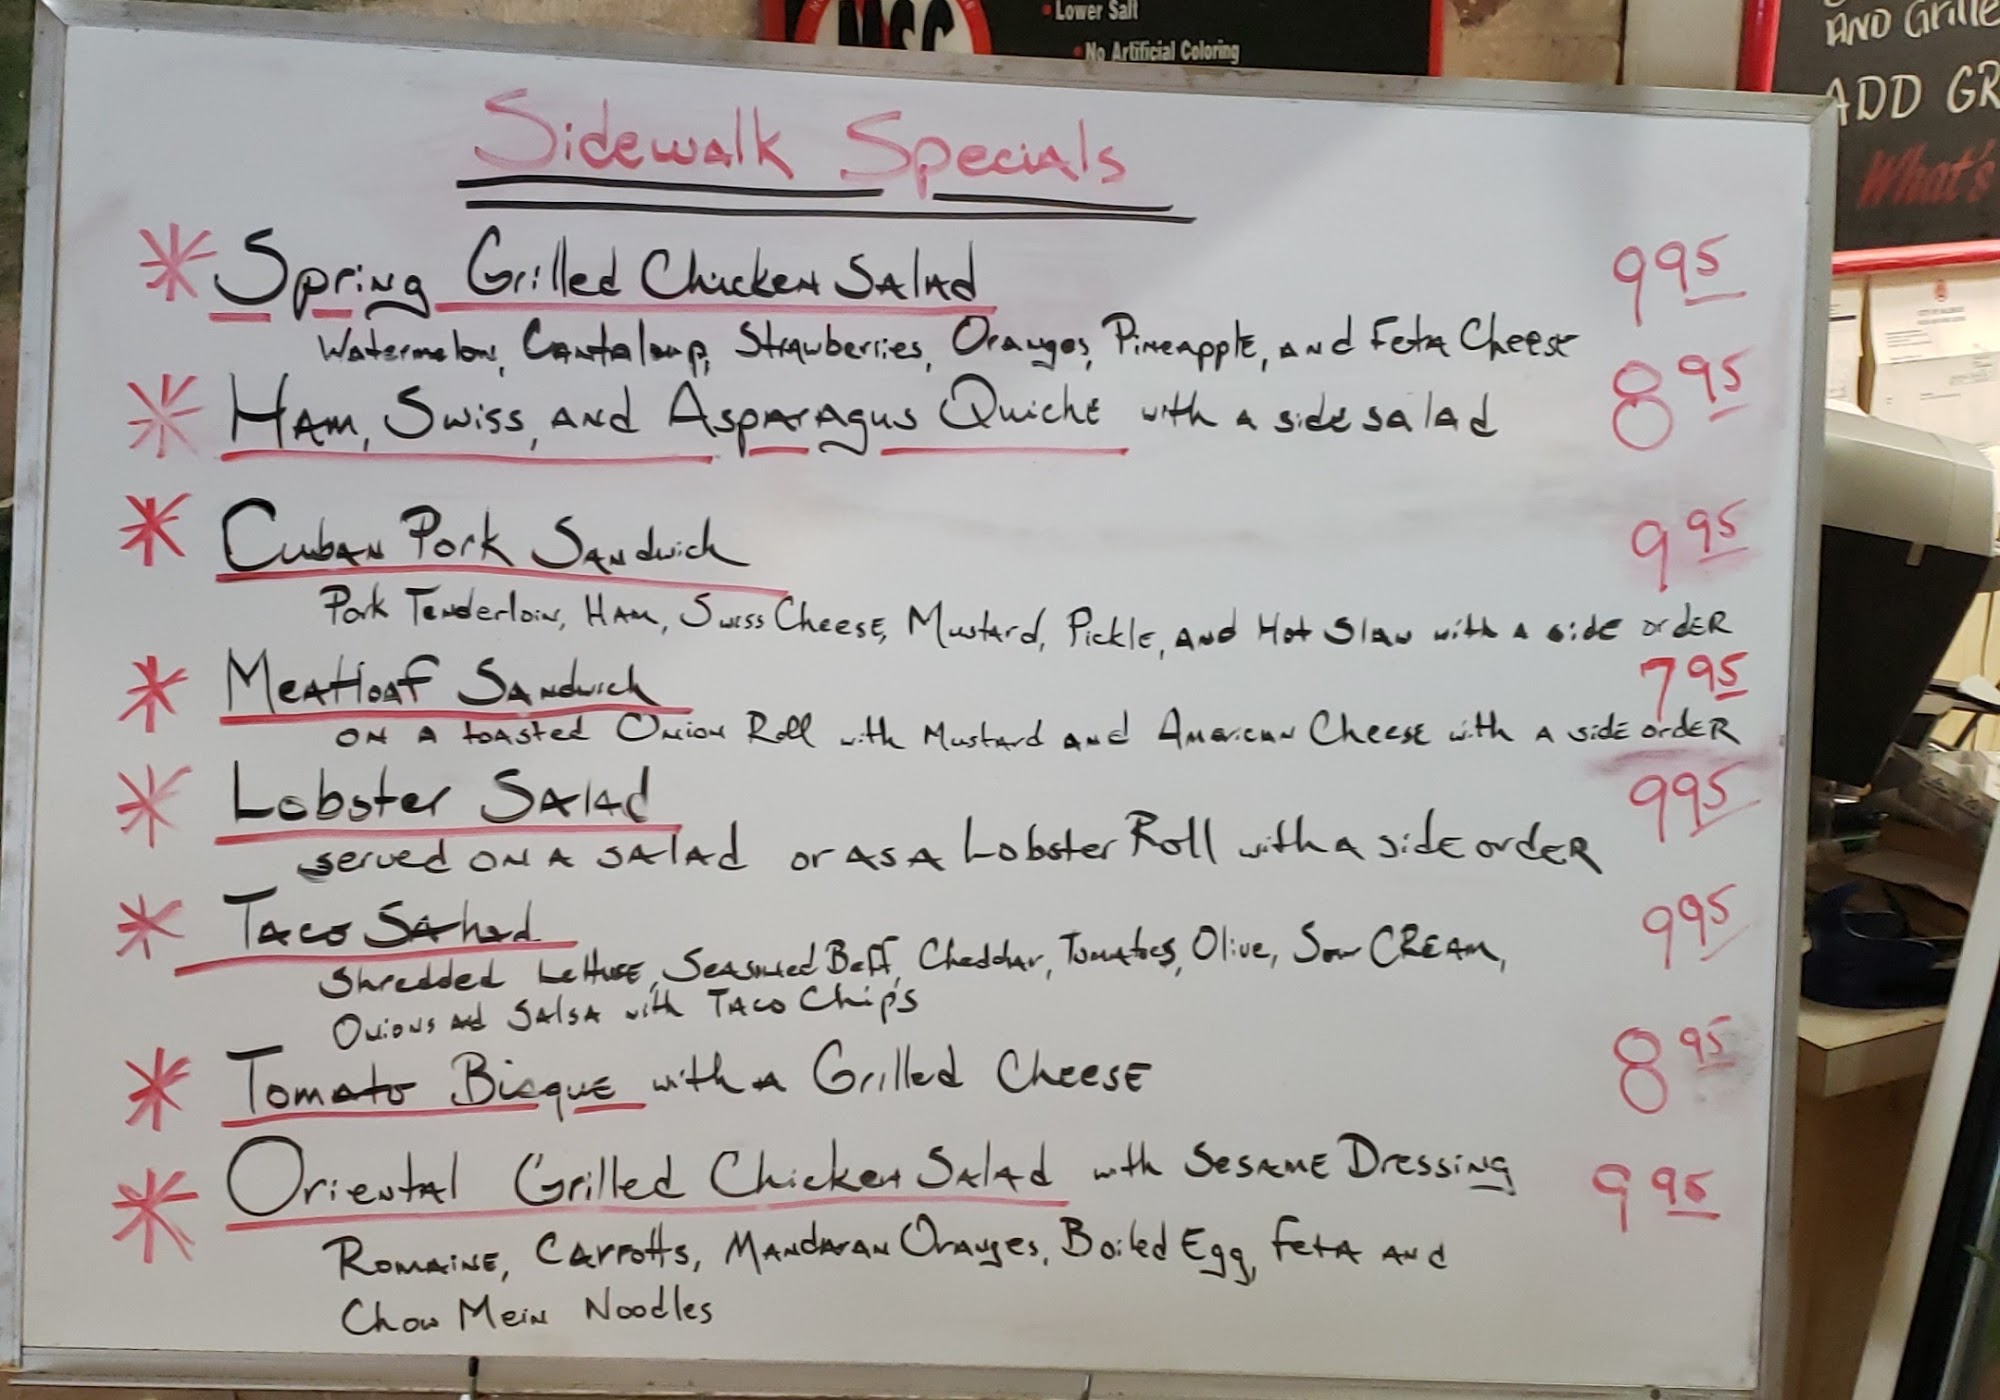 MSC
• Lower Salt
• No Artificial Coloring
AND Grille
ADD GR
What's
Sidewalk Specials
* Spring Grilled Chicken Salad 9 95
Watermelon, Cantaloup, Strawberries, Oranges, Pineapple, and Feta Cheese
* Ham, Swiss, and Asparagus Quiche with a side salad 8 95
* Cuban Pork Sandwich 9 95
Pork Tenderloin, Ham, Swiss Cheese, Mustard, Pickle, and Hot Slaw with a side order
* Meatloaf Sandwich 7 95
on a toasted Onion Roll with Mustard and American Cheese with a side order
* Lobster Salad 9 95
served on a salad or as a Lobster Roll with a side order
* Taco Salad 9 95
Shredded Lettuse, Seasnied Beff, Cheddar, Tomatoes, Olive, Sour CREAM,
Onions and Salsa with Taco Chip's
* Tomato Bisque with a Grilled Cheese 8 95
* Oriental Grilled Chicken Salad with Sesame Dressing 9 95
Romaine, Carrotts, Mandaran Oranges, Boiled Egg, Feta and
Chow Mein Noodles